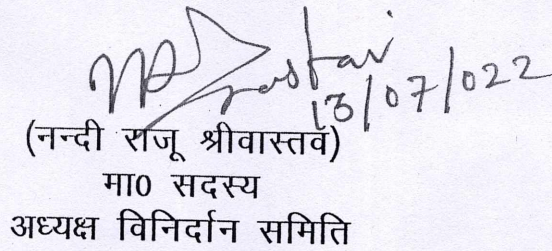 13/07/022
(नन्दी राजू श्रीवास्तव)
मा0 सदस्य
अध्यक्ष विनिर्दान समिति